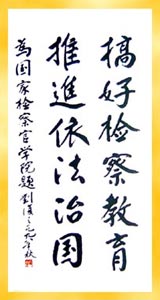 搞好检察教育
推進依法治国
為国家检察官学院題